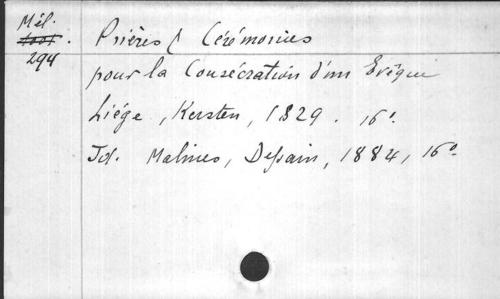 Mél.
294
Prières & Cérémonies
pour la Consécration d'un Evêque
Liége, Kersten, 1829. 16°.
Id. Malines, Dessain, 1884, 16°.